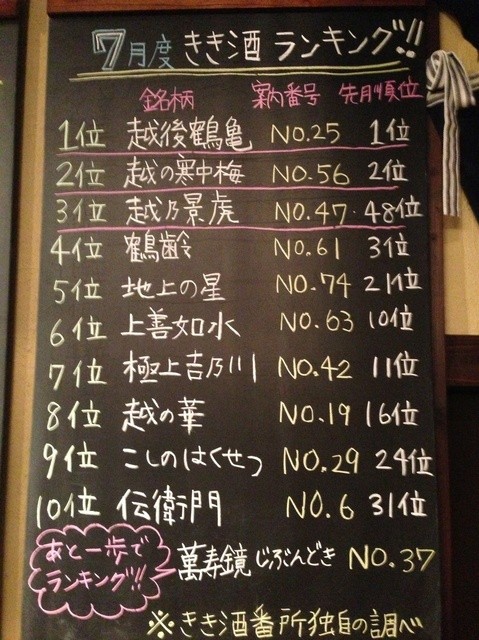 7月度 きき酒 ランキング!!
銘柄 案内番号 先月順位
1位 越後鶴亀 NO.25 1位
2位 越の寒中梅 NO.56 2位
3位 越乃景虎 NO.47 48位
4位 鶴齢 NO.61 3位
5位 地上の星 NO.74 21位
6位 上善如水 NO.63 10位
7位 極上吉乃川 NO.42 11位
8位 越の華 NO.19 16位
9位 こしのはくせつ NO.29 24位
10位 伝衛門 NO.6 31位
あと一歩で
ランキング!!
萬寿鏡 じぶんどき NO.37
※きき酒番所独自の調べ